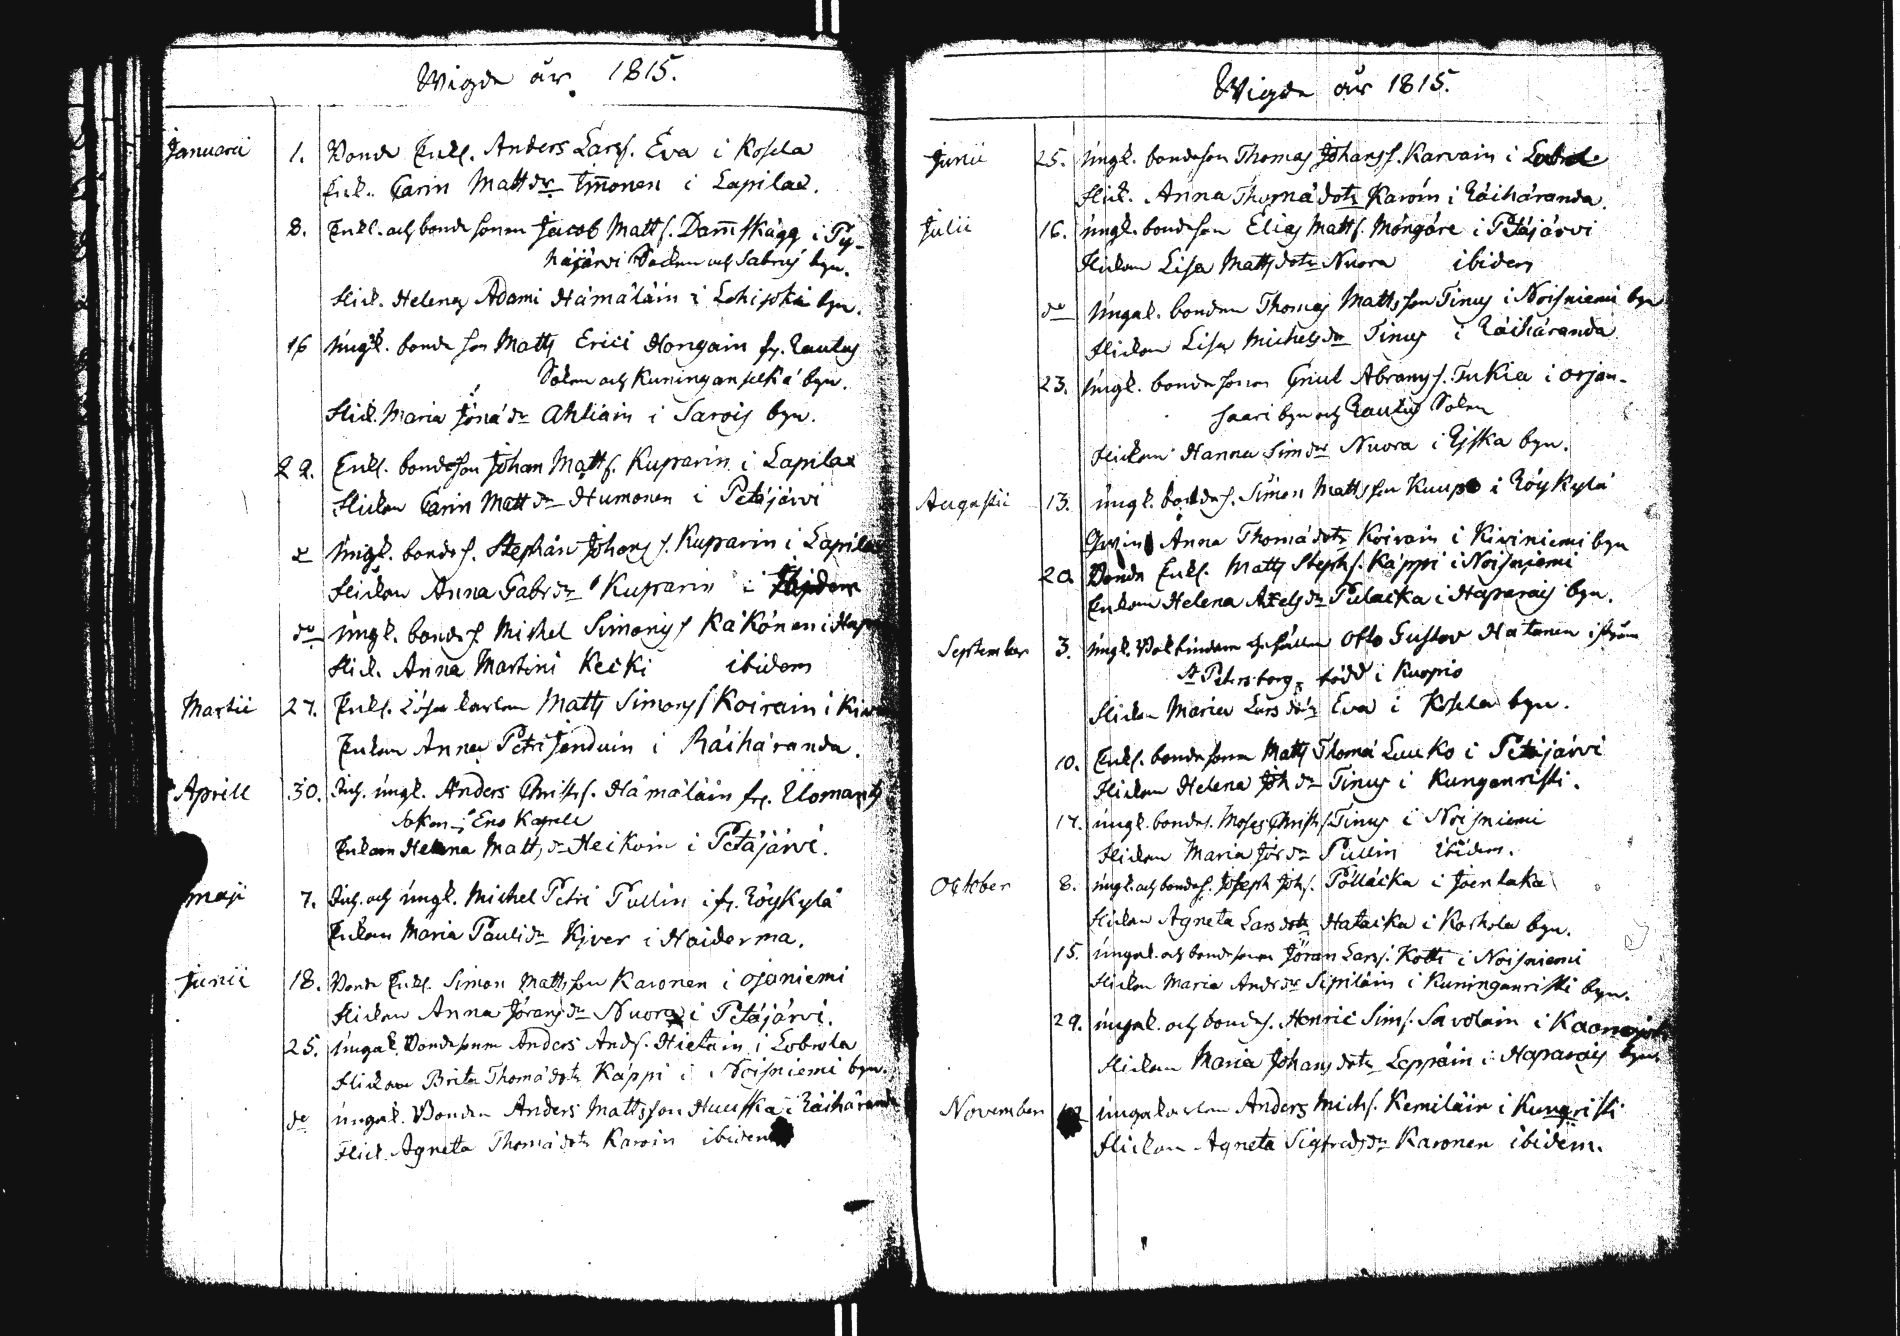 Wigde år 1815.
Januarii 1. Bonde Enkl. Anders Larss. Eva i Kosela
Enk. Carin Mattsdr Immonen i Lapilax.
8. Enkl. och bondesonen Jacob Matts. Dammskägg i Py-
häjärvi Socken och Sabruj byn.
Flick. Helena Adami Hämäläin i Lohijoki byn.
16 Ungk. bonde son Matts Erici Hongain fr. Rautus
Soken och Kuninganselkä byn.
Flick. Maria Jöna dr Ahtiain i Sarois byn.
22. Enkl. bondeson Johan Matts. Kuparin i Lapilax
Flickan Carin Matt dr Humonen i Petäjärvi
Ungk. bondes. Stephan Johans s. Kuparin i Lapilax
Flickan Anna Gabr dr Kuparin i Ibidem
do Ungk. bondes Michel Simons s Käkönen i
Flick. Anna Martini Kecki ibidem
Martii 27. Enkl. Matts Simons s Koirain i
Enkan Anna Petri Janduin i Räihäranda.
Aprill 30. Inh. ungk. Anders Christ s. Hämäläin fr. Ilomants
Soken i Eno Kapell
Enkan Helena Matts dr Heikoin i Petäjärvi.
Maji 7. Inh. och ungk. Michel Petri Pullin i fr. Röykylä
Enkan Maria Pauli dr Kiver i Haiderma.
Junii 18. Bonde Enkl. Simon Mattsson Karonen i Ojaniemi
Flickan Anna Jörans dr Nuora i Petäjärvi.
25. Ungak. Bondesonen Anders Ands. Hietain i
Flickan Brita Thomä dotr Käppi i Noisniemi byn.
do Ungak. Bonden Anders Mattsson Huuska i Räihäranda
Flick. Agneta Thomä dotr Karoin ibidem
Wigde år 1815.
Junii 25. Ungk. bondeson Thomas Johans s. Karvain i
Flick. Anna Thomä dotr Karoin i Räihäranda.
Julii 16. Ungk. bondeson Elias Matts. Möngöre i Petäjärvi
Flickan Lisa Matts dotr Nuora ibidem
do Ungak. bonden Thomas Mattsson Tinus i Noisniemi byn
Flickan Lisa Michels dr Tinus i Räihäranda
23. Ungk. bondesonen Abrams s. Tukia i Orjan-
saari byn och Rautus Soken
Flickan Hanna Sim dr Nuora i Riska byn.
Augustii 13. Ungk. bondes. Simon Mattsson Kuups i Röykylä
Anna Thomä dotr Koirain i Kiviniemi byn
20. Bonde Enkl. Matts Steph s. Käppi i Noisniemi
Enkan Helena Axels dr Pulacka i Haparais byn.
September 3. Ungk. Bokbindare Otto Gustav Hatanen ifrån
St Petersborg, född i Kuopio
Flickan Maria Lars dotr Eva i Kosela byn.
10. Enkl. bondesonen Matts Thomä Luuko i Petäjärvi
Flickan Helena Joh dr Tinus i Kunganristi.
17. Ungk. bondes. Moses Christ s. Tinus i Noisniemi
Flickan Maria Jör dr Pullin ibidem.
October 8. Ungk. och bondes. Joseph Joh s. Pölläcka i Joentaka
Flickan Agneta Lars dotr Hatacka i Koskola byn.
15. Ungak. och bondesonen Jöran Larss. Kotti i Noisniemi
Flickan Maria Andr dr Sipiläin i Kuninganristi byn.
29. Ungak. och bondes. Henric Sim s. Savolain i
Flickan Maria Johans dotr Leppäin i Haparais byn
November Ungakarlen Anders Mich s. Kemiläin i Kungristi
Flickan Agneta Sigfreds dr Karonen ibidem.